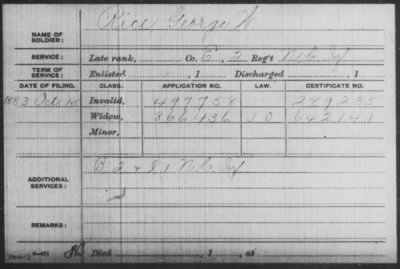 Rice, George W
NAME OF SOLDIER:
SERVICE: Late rank, Co. E, 2 Reg't Neb. Inf
TERM OF SERVICE: Enlisted , 1 Discharged , 1
DATE OF FILING. CLASS. APPLICATION NO. LAW. CERTIFICATE NO.
1883 Oct Invalid, 497758 289235
Widow, 866436 642141
Minor,
ADDITIONAL SERVICES: B, 2 & 1 Neb. Inf
REMARKS:
Died , 1 , at